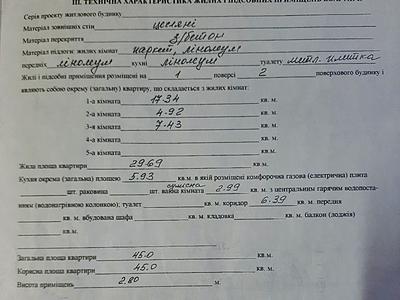 III. ТЕХНІЧНА ХАРАКТЕРИСТИКА ЖИЛИХ І ПІДСОБНИХ ПРИМІЩЕНЬ
Серія проекту житлового будинку
Матеріал зовнішніх стін цегляні
Матеріал перекриття з/бетон
Матеріал підлоги: жилих кімнат паркет, лінолеум
передніх лінолеум кухні лінолеум туалету метл. плитка
Жилі і підсобні приміщення розміщені на 1 поверсі 2 поверхового будинку і
являють собою окрему (загальну) квартиру, що складається з жилих кімнат:
1-а кімната 17.34 кв. м.
2-а кімната 4.92 кв. м.
3-я кімната 7.43 кв. м.
4-а кімната кв. м.
5-а кімната кв. м.
Жила площа квартири 29.69 кв. м.
Кухня окрема (загальна) площею 5.93 кв. м в якій розміщені комфорочна газова (електрична) плита
шт. раковина шт. ванна кімната суміжна 2.99 кв. м з центральним гарячим водопоста-
нням (водогрівною колонкою); туалет кв. м. коридор 6.39 кв. м. передня
кв. м. вбудована шафа кв. м. кладовка кв. м. балкон (лоджія)
кв. м.
Загальна площа квартири 45.0 кв. м.
Корисна площа квартири 45.0 кв. м.
Висота приміщень 2.80 м.